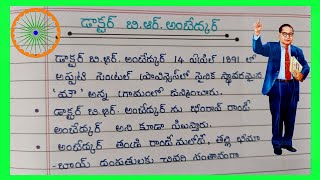 డాక్టర్ బి.ఆర్.అంబేద్కర్
డాక్టర్ బి.ఆర్. అంబేద్కర్ 14 ఏప్రిల్ 1891 లో
అప్పటి సెంట్రల్ ప్రావిన్సెస్‌లో సైనిక స్థావరమైన
"మౌ" అన్న గ్రామంలో జన్మించారు.
డాక్టర్ బి.ఆర్. అంబేద్కర్ ను భీంరావ్ రాంజీ
అంబేద్కర్ అని కూడా పిలుస్తారు.
అంబేద్కర్ తండ్రి రాంజీ మలోజీ, తల్లి భీమా
-బాయ్ దంపతులకు చివరి సంతానంగా